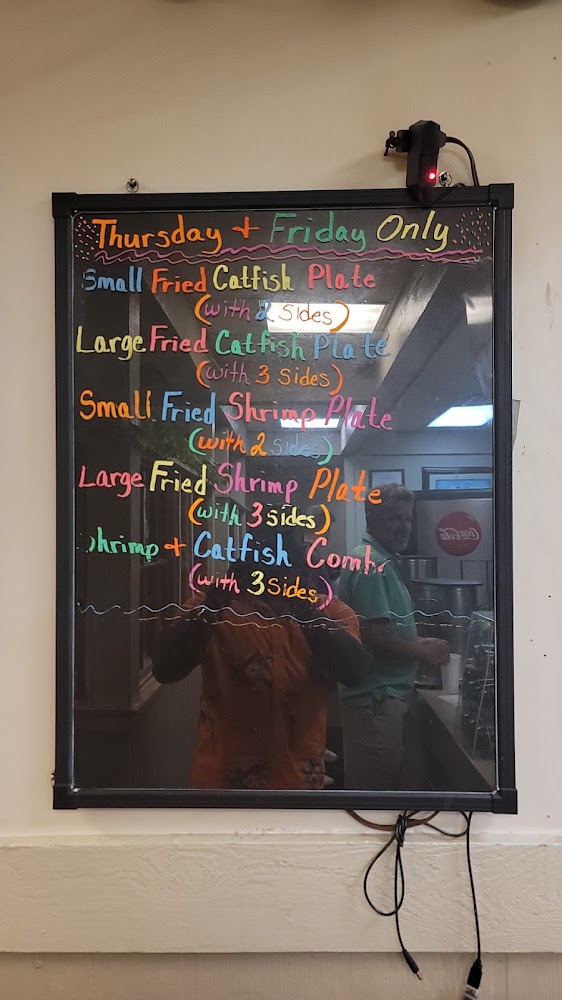 Thursday + Friday Only
Small Fried Catfish Plate
(with 2 sides)
Large Fried Catfish Plate
(with 3 sides)
Small Fried Shrimp Plate
(with 2 sides)
Large Fried Shrimp Plate
(with 3 sides)
Shrimp + Catfish Combo
(with 3 sides)
Coca-Cola